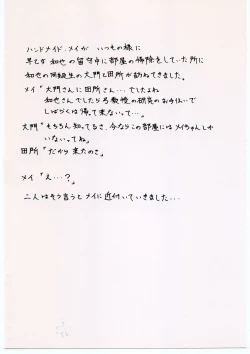 ハンドメイド・メイが いつもの様に
早乙女 和也の留守中に部屋の掃除をしていた所に
和也の同級生の大門と田所が訪ねてきました。
メイ“大門さんに田所さん…でしたよね
和也さんでしたら弓教授の研究のお手伝いで
しばらくは帰って来ないって…”
大門“もちろん知ってるさ、今ならこの部屋にはメイちゃんしか
いないってね”
田所“だから来たのさ”
メイ“え…?”
二人はそう言うとメイに近付いていきました…